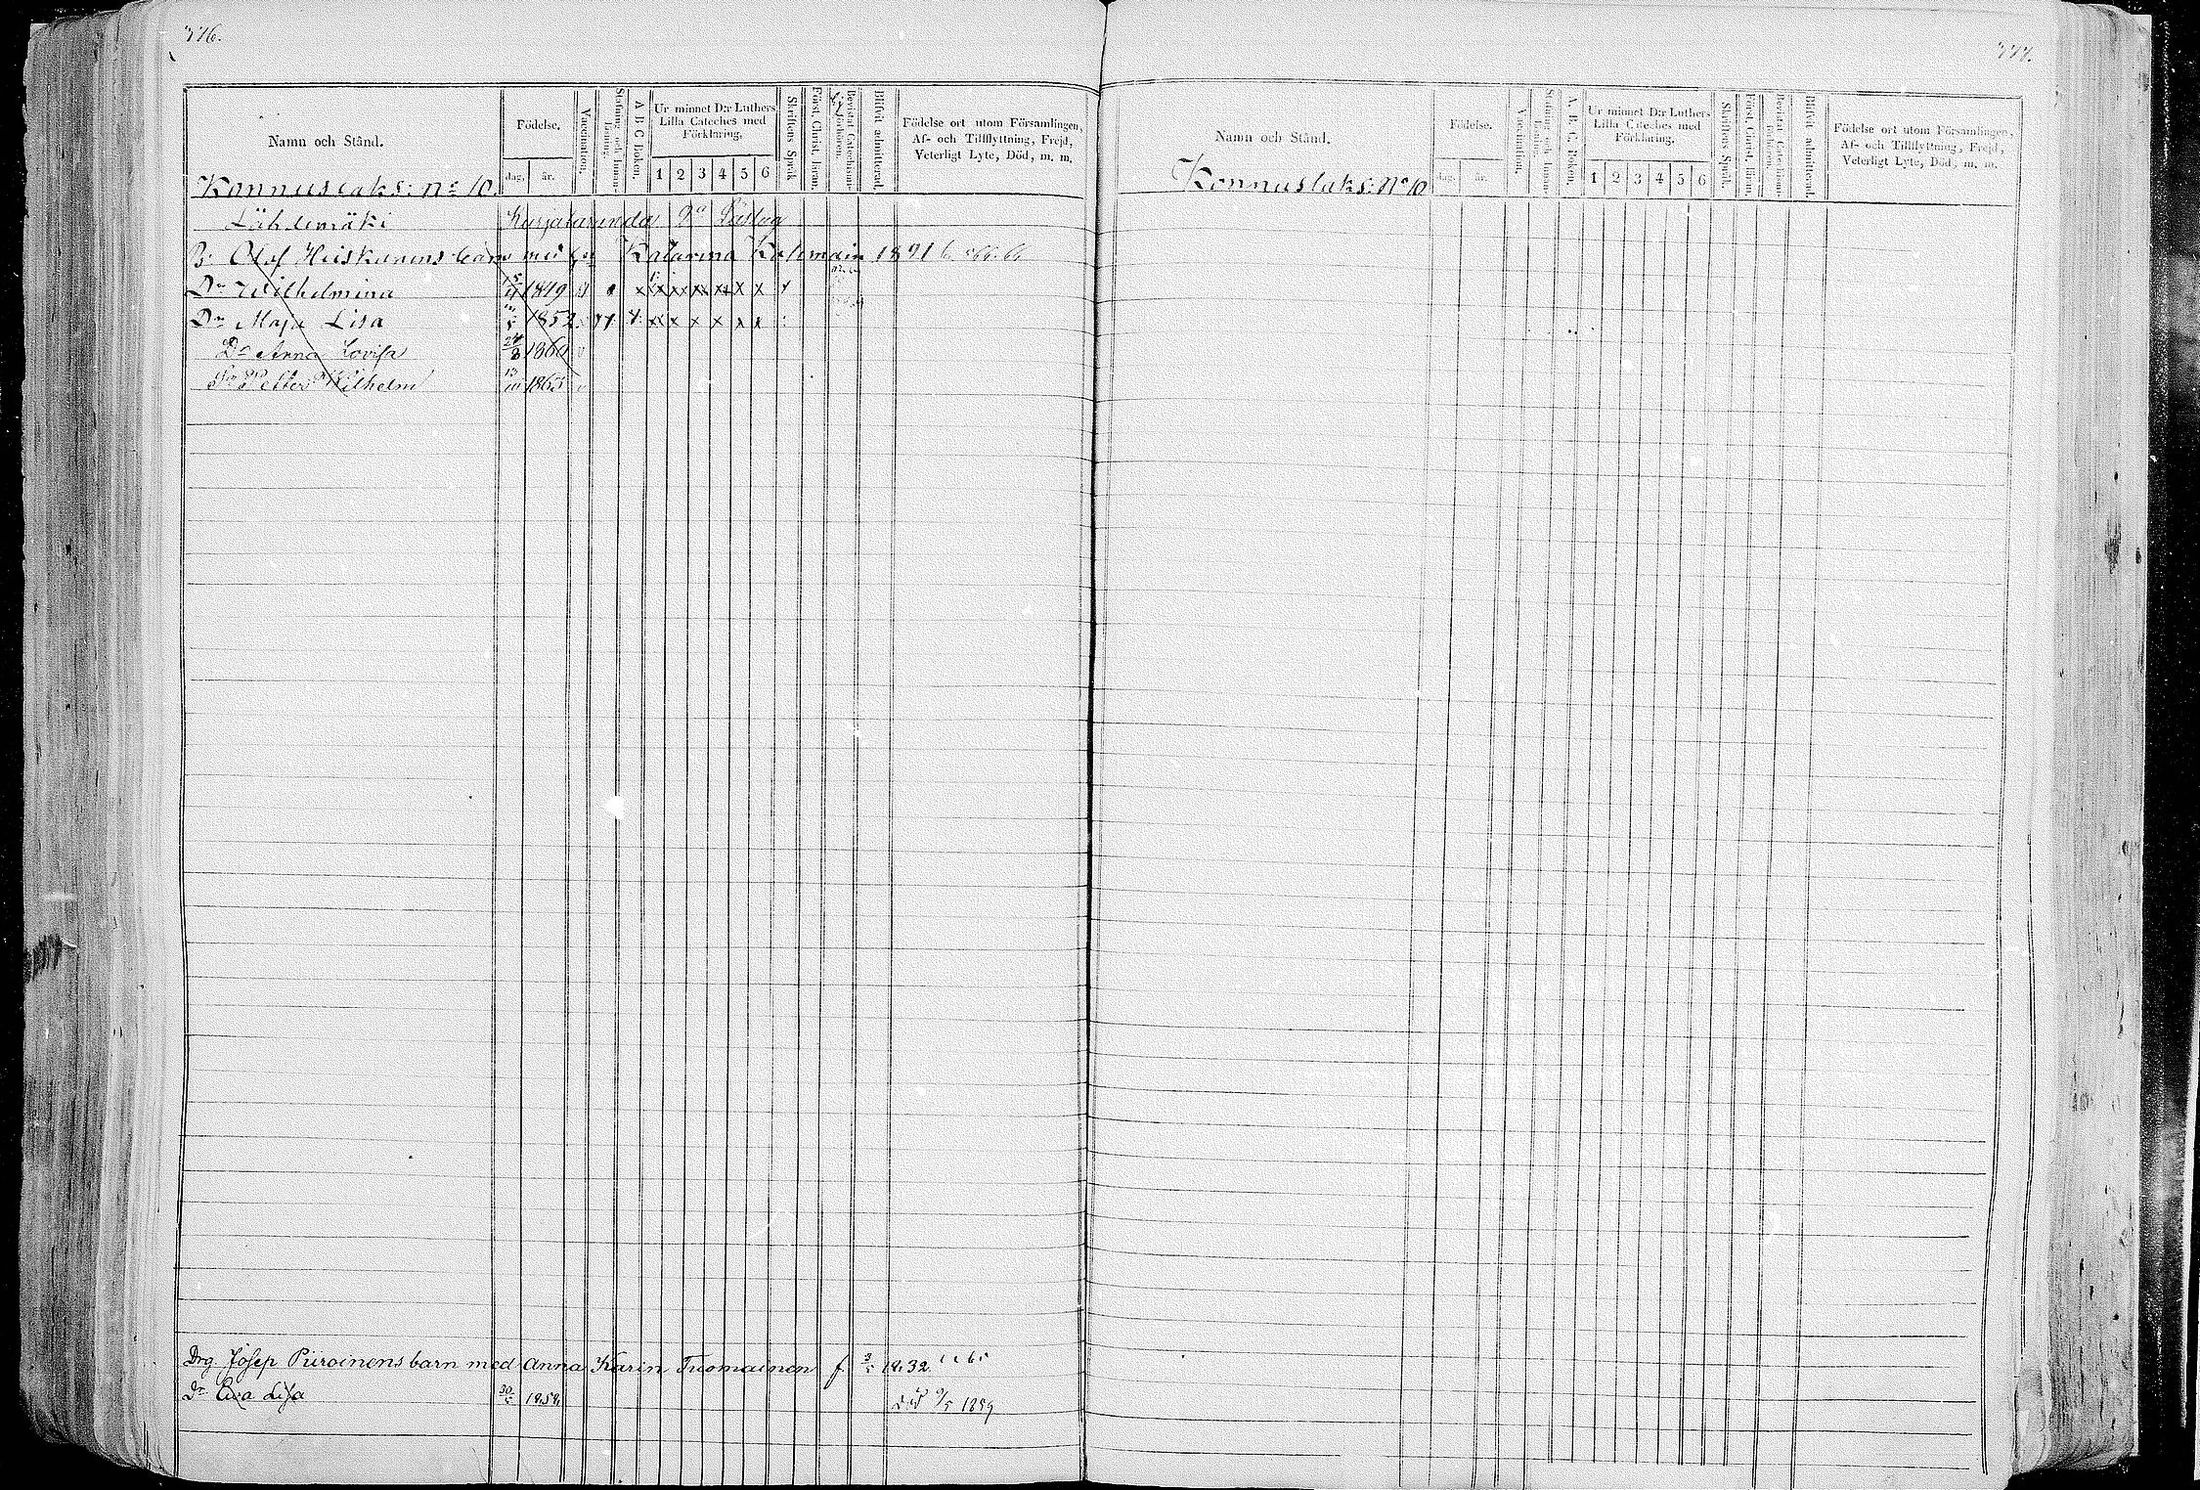 376.
Namn och Stånd.
Födelse.
dag, år.
Vaccination.
Stafning och Innanläsning.
A B C Boken.
Ur minnet D:r Luthers
Lilla Cateches med
Förklaring.
1 2 3 4 5 6
Skriftens Språk.
Först. Christ. läran.
Bevistat Catechismi förhören.
Blifvit admitterad.
Födelse ort utom Församlingen,
Af- och Tillflyttning, Frejd,
Veterligt Lyte, Död, m. m.
Konnuslaks: No 10.
Lähdemäki
B: Olof Heiskanens barn med Katarina 1821
Dr Wilhelmina 1849
Dr Maja Lisa 1852
Dr Anna Lovisa 24/8 1860
Sn Petter Wilhelm 1863
Drg Josep Piiroinens barn med Anna Karin Tuomainen f 1832
Dr Eva Lisa 1858 död 9/5 1859
377.
Namn och Stånd.
Födelse.
dag, år.
Vaccination.
Stafning och Innanläsning.
A. B. C. Boken.
Ur minnet D:r Luthers
Lilla Cateches med
Förklaring.
1 2 3 4 5 6
Skriftens Språk.
Först. Christ. läran.
Bevistat Catechismi förhören.
Blifvit admitterad.
Födelse ort utom Församlingen,
Af- och Tillflyttning, Frejd,
Veterligt Lyte, Död, m. m.
Konnuslaks: No 10